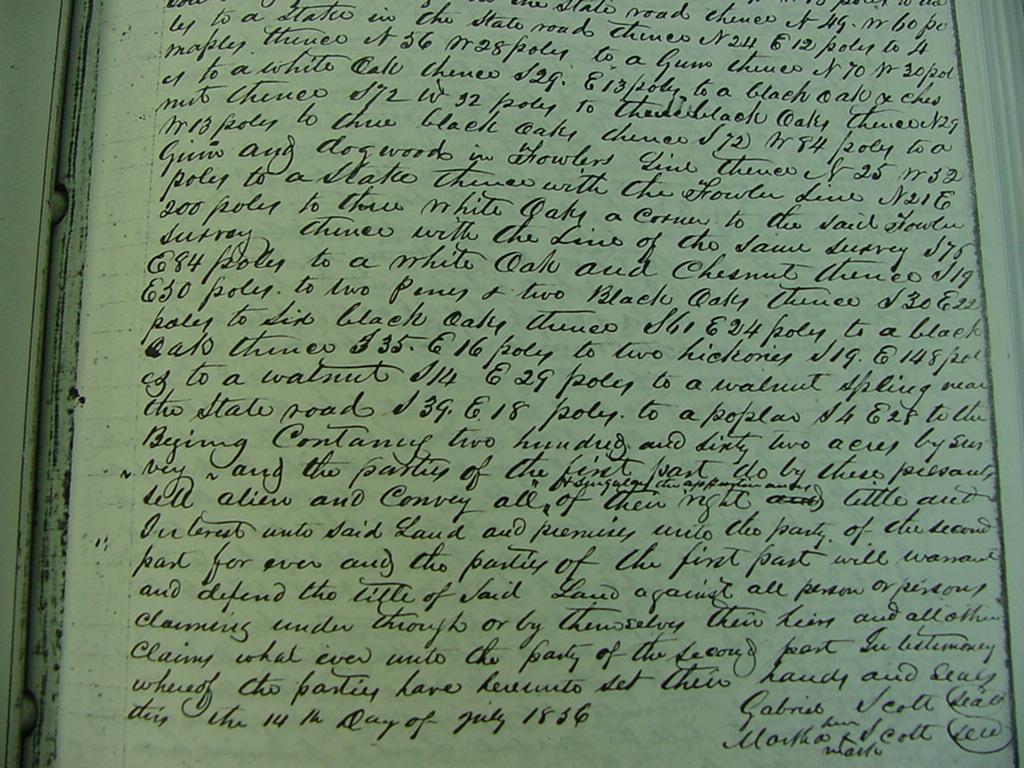 the State road thence N 49. W 60 po
les to a Stake in the State road thence N 24 E 12 poles to 4
maples. thence N 36 W 28 poles to a Gum thence N 70 W 30 pol
es to a white Oak thence S 29. E 13 poles to a black Oak & ches
nut thence S 72 W 32 poles to three black Oaks thence N 29
W 13 poles to three black Oaks thence S 72 W 84 poles to a
Gum and dogwood in Fowlers Line thence N 25 W 32
poles to a Stake thence with the Fowler Line N 21 E
200 poles to three White Oaks a Corner to the said Fowler
survey thence with the Line of the same survey S 78
E 84 poles to a White Oak and Chesnut thence S 19
E 30 poles. to two Pines & two Black Oaks thence S 30 E 22
poles to Six black Oaks thence S 61 E 24 poles to a black
Oak thence S 35. E 16 poles to two hickories S 19. E 148 pol
es to a walnut S 14 E 29 poles to a walnut spling near
the State road S 39. E 18 poles. to a poplar S 4 E 28 to the
Begining Containing two hundred and sixty two acres by sur
vey and the parties of the first part do by these presants
& singular the appurtenances
sell alien and Convey all of their right and tittle and
Interest unto said Land and premises unto the party of the second
part for ever and the parties of the first part will warrant
and defend the title of Said Land against all person or persons
claiming under through or by themselves their heirs and all other
Claims what ever unto the party of the second part In testimoney
whereof the parties have hereunto set their hands and Seals
this the 14th Day of July 1856
Gabriel Scott seal
her
Martha + Scott seal
mark